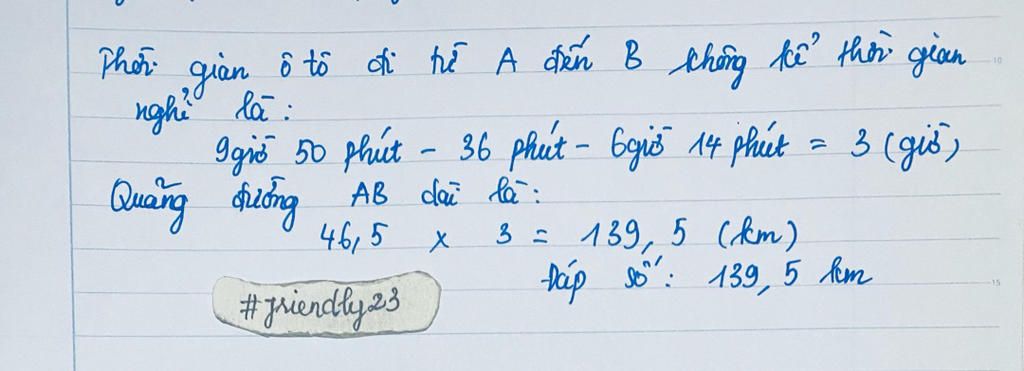 Thời gian ô tô đi từ A đến B không kể thời gian
nghỉ là:
9giờ 50 phút - 36 phút - 6giờ 14 phút = 3 (giờ)
Quãng đường AB dài là:
46,5 x 3 = 139,5 (km)
Đáp số: 139,5 km
#friendly23